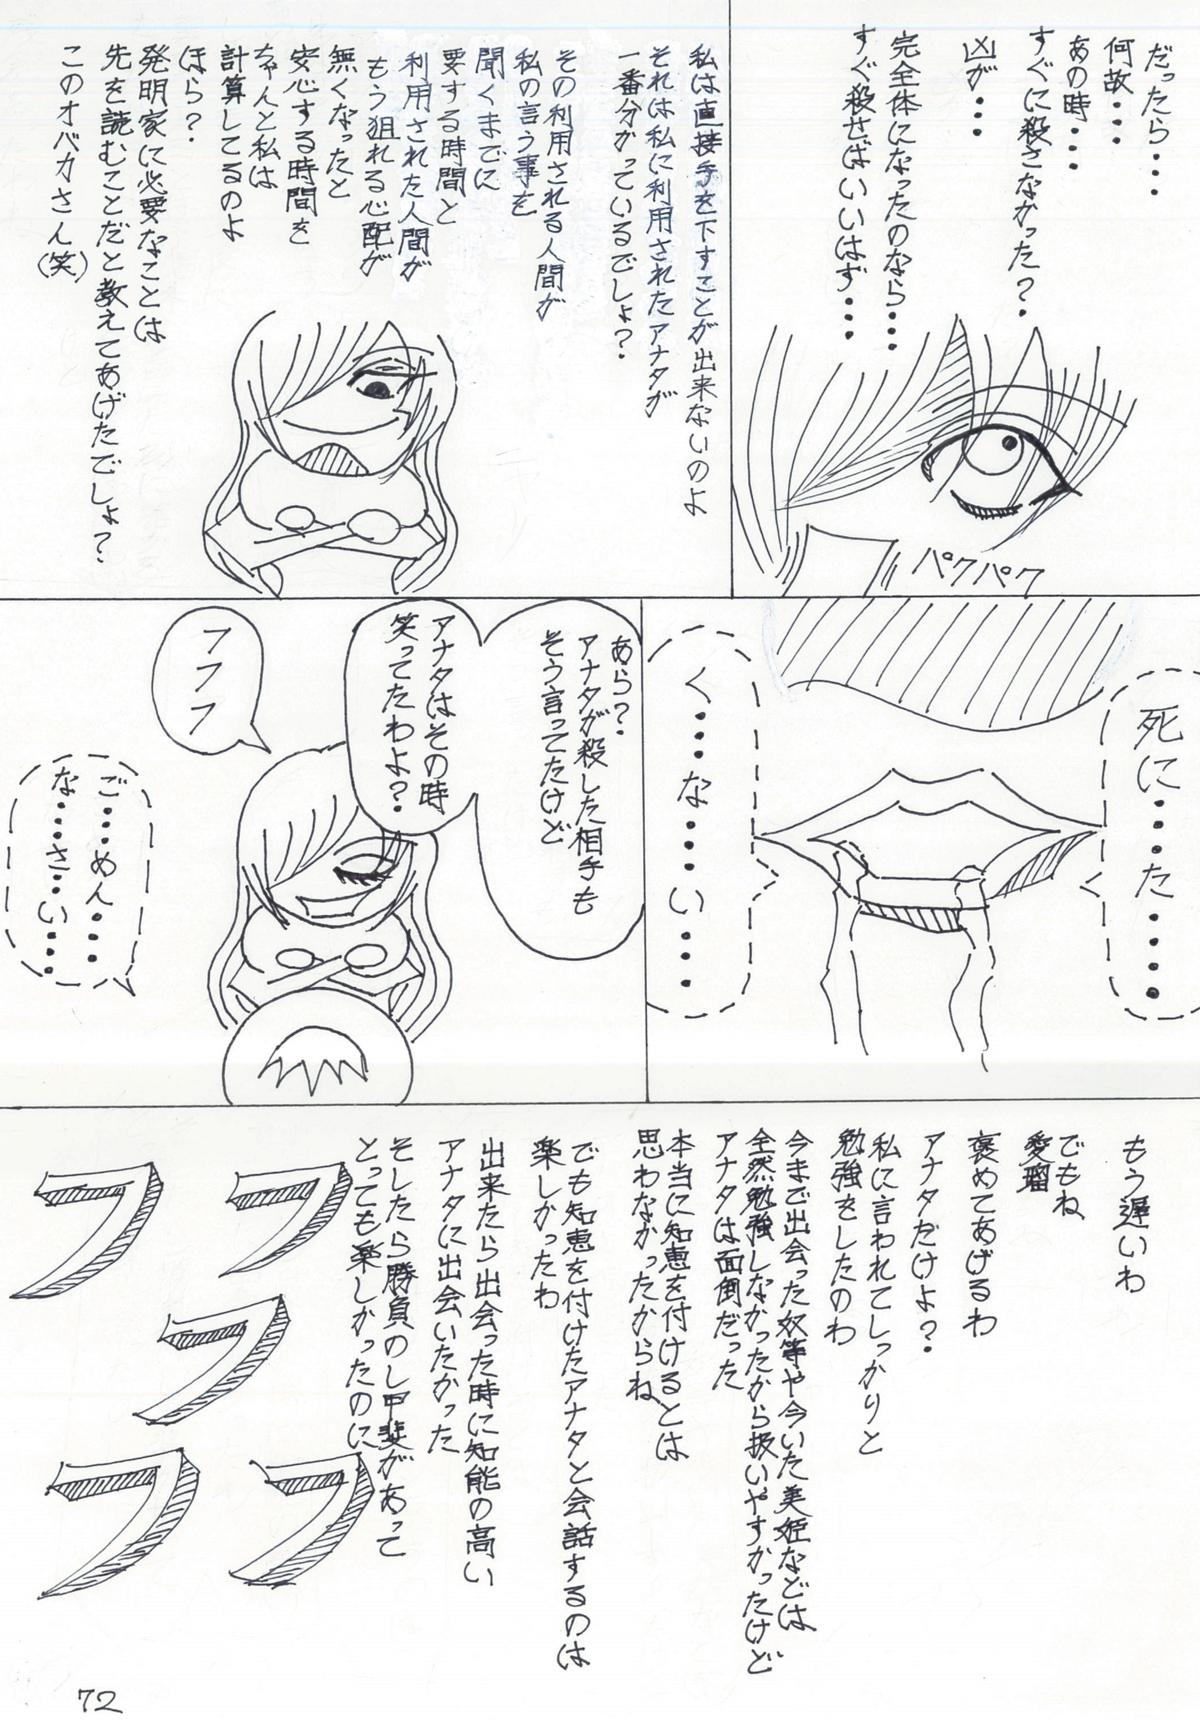 だったら・・・
何故・・・
あの時・・・
すぐに殺さなかった？・
凶が・・・
完全体になったのなら・・・・
すぐ殺せばいいはず・・・・
パクパク
私は直接手を下すことが出来ないのよ
それは私に利用されたアナタが
一番分かっているでしょ？・
その利用される人間が
私の言う事を
聞くまでに
要する時間と
利用された人間が
もう狙れる心配が
無くなったと
安心する時間を
ちゃんと私は
計算してるのよ
ほら？・
発明家に必要なことは
先を読むことだと教えてあげたでしょ？
このオバカさん（笑）
死に・・・・た・・・・・
く・・・・な・・・・い・・・・
あら？・
アナタが殺した相手も
そう言ってたけど
アナタはその時
笑ってたわよ？・
フフフ
ご・・・・めん・・・・
な・・・・さ・・い・・・・
もう遅いわ
でもね
愛瑠
褒めてあげるわ
アナタだけよ？・
私に言われてしっかりと
勉強をしたのわ
今まで出会った奴等や今いた美姫などは
全然勉強しなかったから扱いやすかったけど
アナタは面倒だった
本当に知恵を付けるとは
思わなかったからね
でも知恵を付けたアナタと会話するのは
楽しかったわ
出来たら出会った時に知能の高い
アナタに出会いたかった
そしたら勝負のし甲斐があって
とっても楽しかったのに
フフフフフ
72